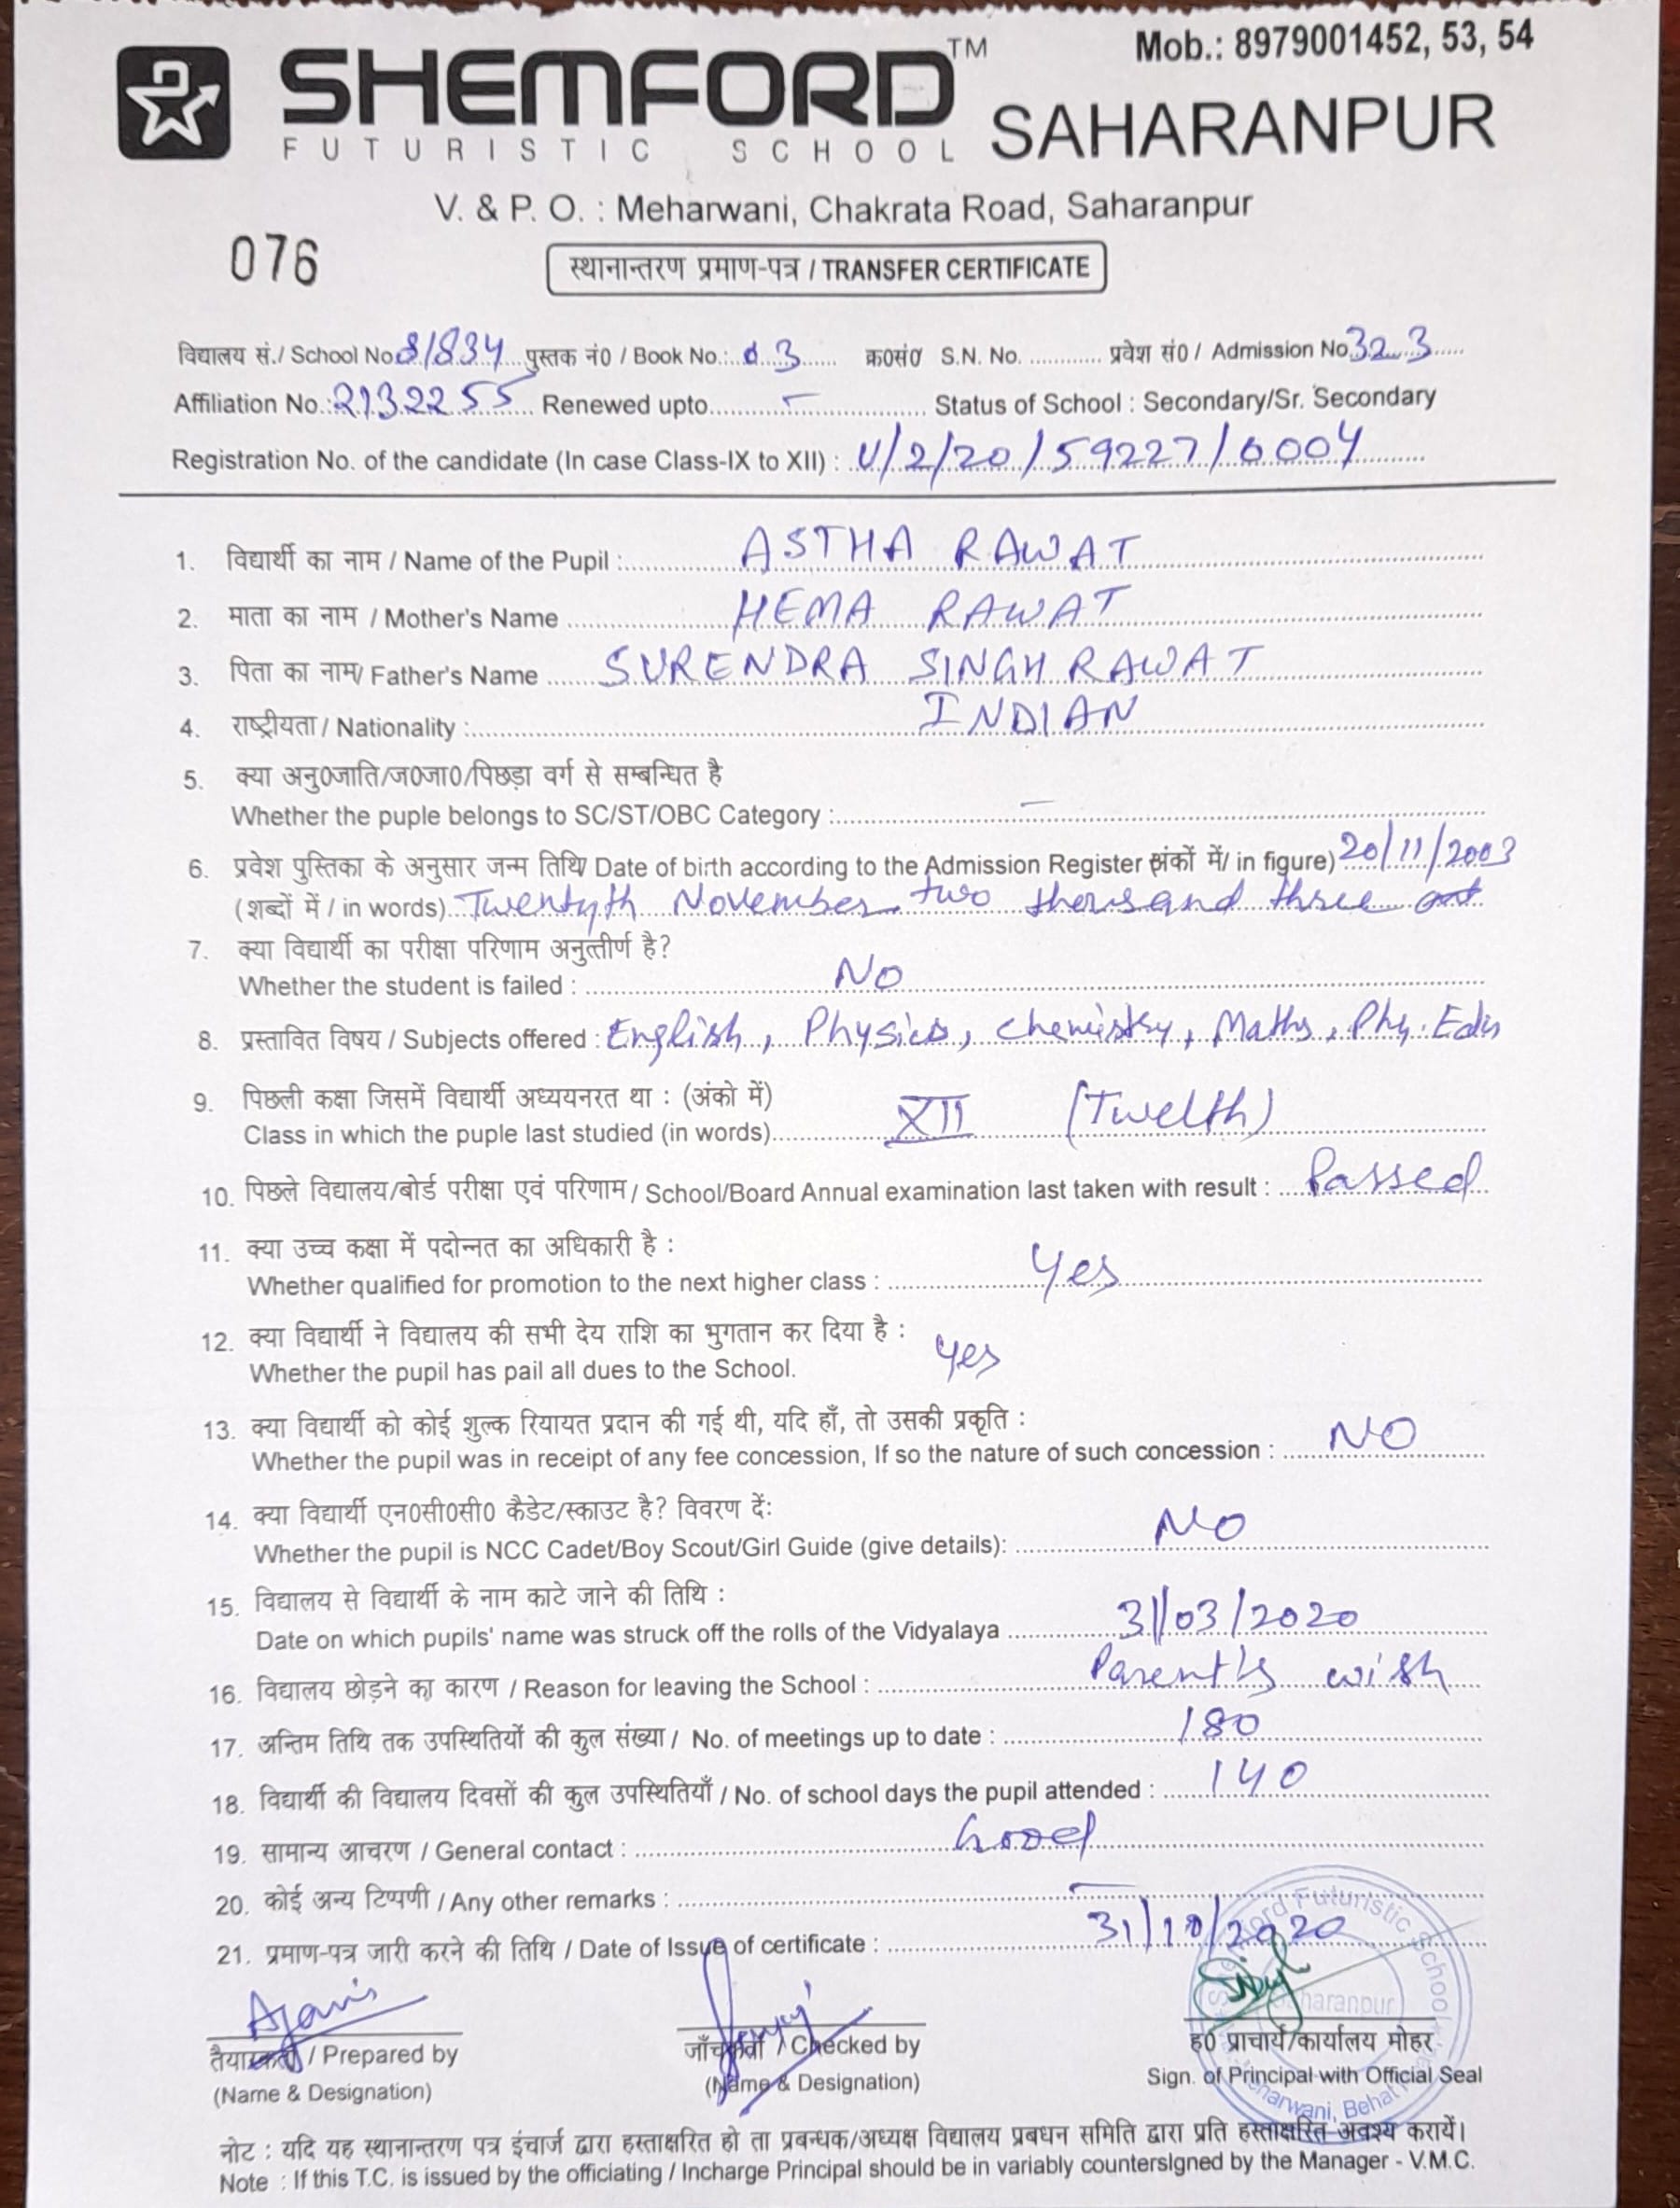 Mob.: 8979001452, 53, 54
SHEMFORD™ SAHARANPUR
FUTURISTIC SCHOOL
V. & P. O. : Meharwani, Chakrata Road, Saharanpur
076
स्थानान्तरण प्रमाण-पत्र / TRANSFER CERTIFICATE
विद्यालय सं./ School No 81834 पुस्तक नं0 / Book No.: 03 क्र0सं0 S.N. No. ............ प्रवेश सं0 / Admission No 323
Affiliation No.: 2132255 Renewed upto.......–....... Status of School : Secondary/Sr. Secondary
Registration No. of the candidate (In case Class-IX to XII) : U/2/20/59227/0004
1. विद्यार्थी का नाम / Name of the Pupil : ASTHA RAWAT
2. माता का नाम / Mother's Name HEMA RAWAT
3. पिता का नाम/ Father's Name SURENDRA SINGH RAWAT
4. राष्ट्रीयता / Nationality : INDIAN
5. क्या अनु0जाति/ज0जा0/पिछड़ा वर्ग से सम्बन्धित है
Whether the puple belongs to SC/ST/OBC Category : –
6. प्रवेश पुस्तिका के अनुसार जन्म तिथि/ Date of birth according to the Admission Register (अंकों में/ in figure) 20/11/2003
(शब्दों में / in words) Twentyth November two thousand three
7. क्या विद्यार्थी का परीक्षा परिणाम अनुत्तीर्ण है?
Whether the student is failed : NO
8. प्रस्तावित विषय / Subjects offered : English, Physics, Chemistry, Maths, Phy. Edu
9. पिछली कक्षा जिसमें विद्यार्थी अध्ययनरत था : (अंको में)
Class in which the puple last studied (in words) XII (Twelth)
10. पिछले विद्यालय/बोर्ड परीक्षा एवं परिणाम / School/Board Annual examination last taken with result : Passed
11. क्या उच्च कक्षा में पदोन्नत का अधिकारी है :
Whether qualified for promotion to the next higher class : Yes
12. क्या विद्यार्थी ने विद्यालय की सभी देय राशि का भुगतान कर दिया है :
Whether the pupil has pail all dues to the School. Yes
13. क्या विद्यार्थी को कोई शुल्क रियायत प्रदान की गई थी, यदि हाँ, तो उसकी प्रकृति :
Whether the pupil was in receipt of any fee concession, If so the nature of such concession : NO
14. क्या विद्यार्थी एन0सी0सी0 कैडेट/स्काउट है? विवरण दें:
Whether the pupil is NCC Cadet/Boy Scout/Girl Guide (give details): NO
15. विद्यालय से विद्यार्थी के नाम काटे जाने की तिथि :
Date on which pupils' name was struck off the rolls of the Vidyalaya 31/03/2020
16. विद्यालय छोड़ने का कारण / Reason for leaving the School : Parent's wish
17. अन्तिम तिथि तक उपस्थितियों की कुल संख्या / No. of meetings up to date : 180
18. विद्यार्थी की विद्यालय दिवसों की कुल उपस्थितियाँ / No. of school days the pupil attended : 140
19. सामान्य आचरण / General contact : Good
20. कोई अन्य टिप्पणी / Any other remarks : –
21. प्रमाण-पत्र जारी करने की तिथि / Date of Issue of certificate : 31/10/2020
तैयारकर्ता / Prepared by जाँचकर्ता / Checked by ह0 प्राचार्य/कार्यालय मोहर
(Name & Designation) (Name & Designation) Sign. of Principal with Official Seal
नोट : यदि यह स्थानान्तरण पत्र इंचार्ज द्वारा हस्ताक्षरित हो ता प्रबन्धक/अध्यक्ष विद्यालय प्रबधन समिति द्वारा प्रति हस्ताक्षरित अवश्य करायें।
Note : If this T.C. is issued by the officiating / Incharge Principal should be in variably countersigned by the Manager - V.M.C.